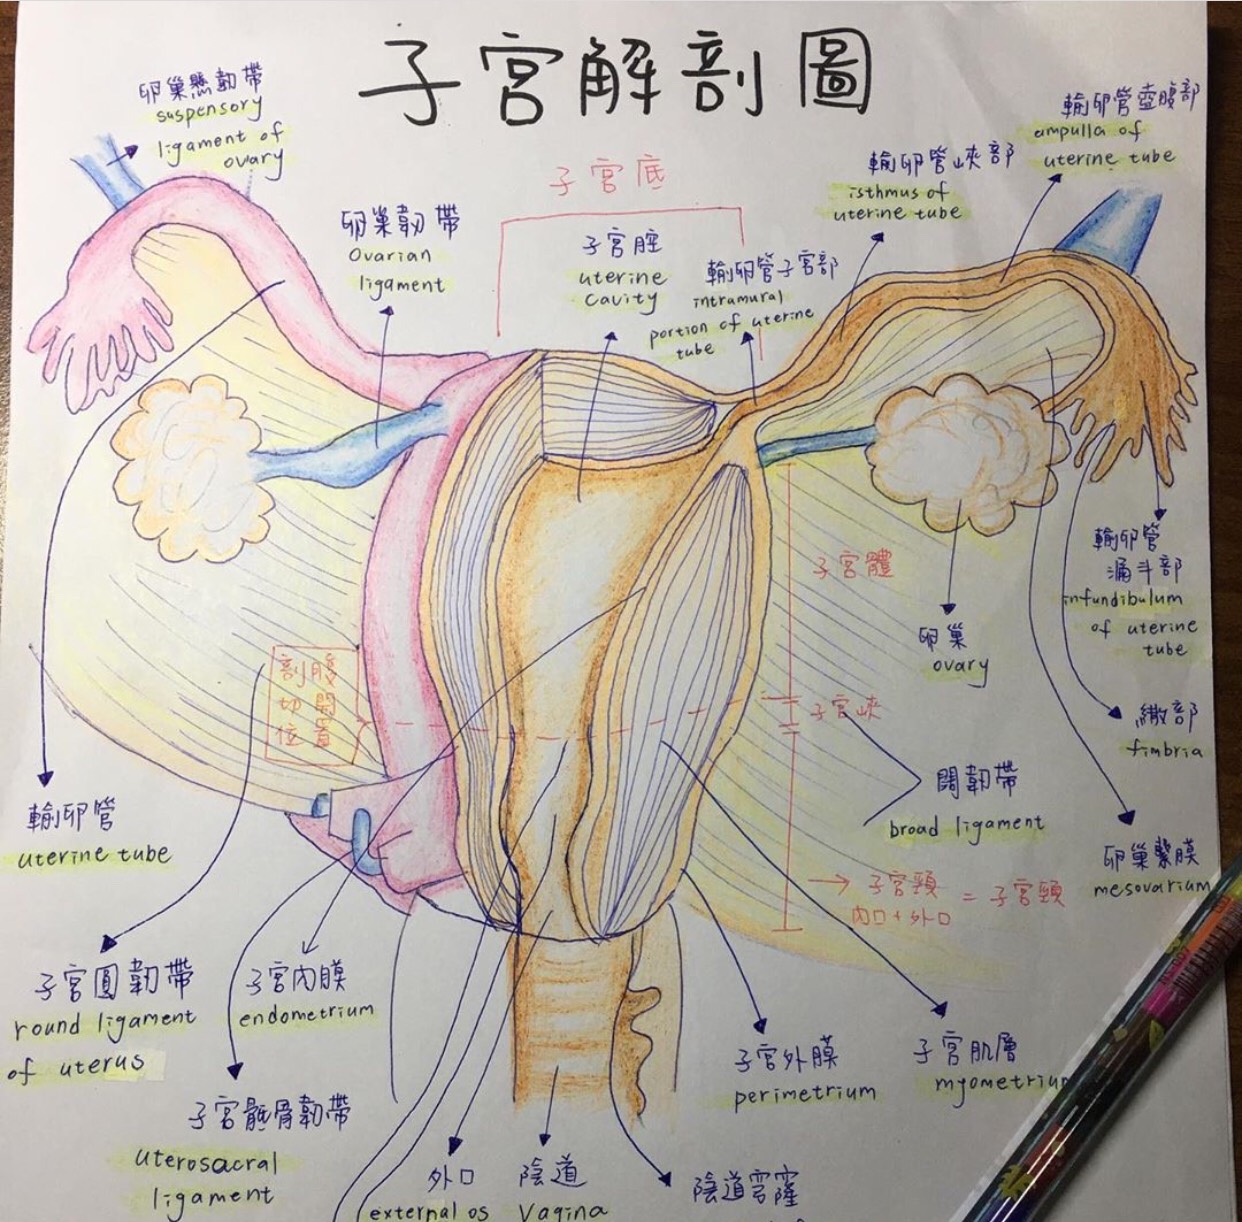 子宮解剖圖
卵巢懸韌帶
suspensory
ligament of
ovary
子宮底
卵巢韌帶
Ovarian
ligament
子宮腔
uterine
cavity
輸卵管子宮部
intramural
portion of uterine
tube
輸卵管峽部
isthmus of
uterine tube
輸卵管壺腹部
ampulla of
uterine tube
子宮體
卵巢
ovary
輸卵管
漏斗部
infundibulum
of uterine
tube
剖腹
切開
位置
子宮峽
繖部
fimbria
闊韌帶
broad ligament
輸卵管
uterine tube
卵巢繫膜
mesovarium
→ 子宮頸 = 子宮頸
內口+外口
子宮圓韌帶
round ligament
of uterus
子宮內膜
endometrium
子宮外膜
perimetrium
子宮肌層
myometrium
子宮骶骨韌帶
uterosacral
ligament
外口
external os
陰道
Vagina
陰道穹窿